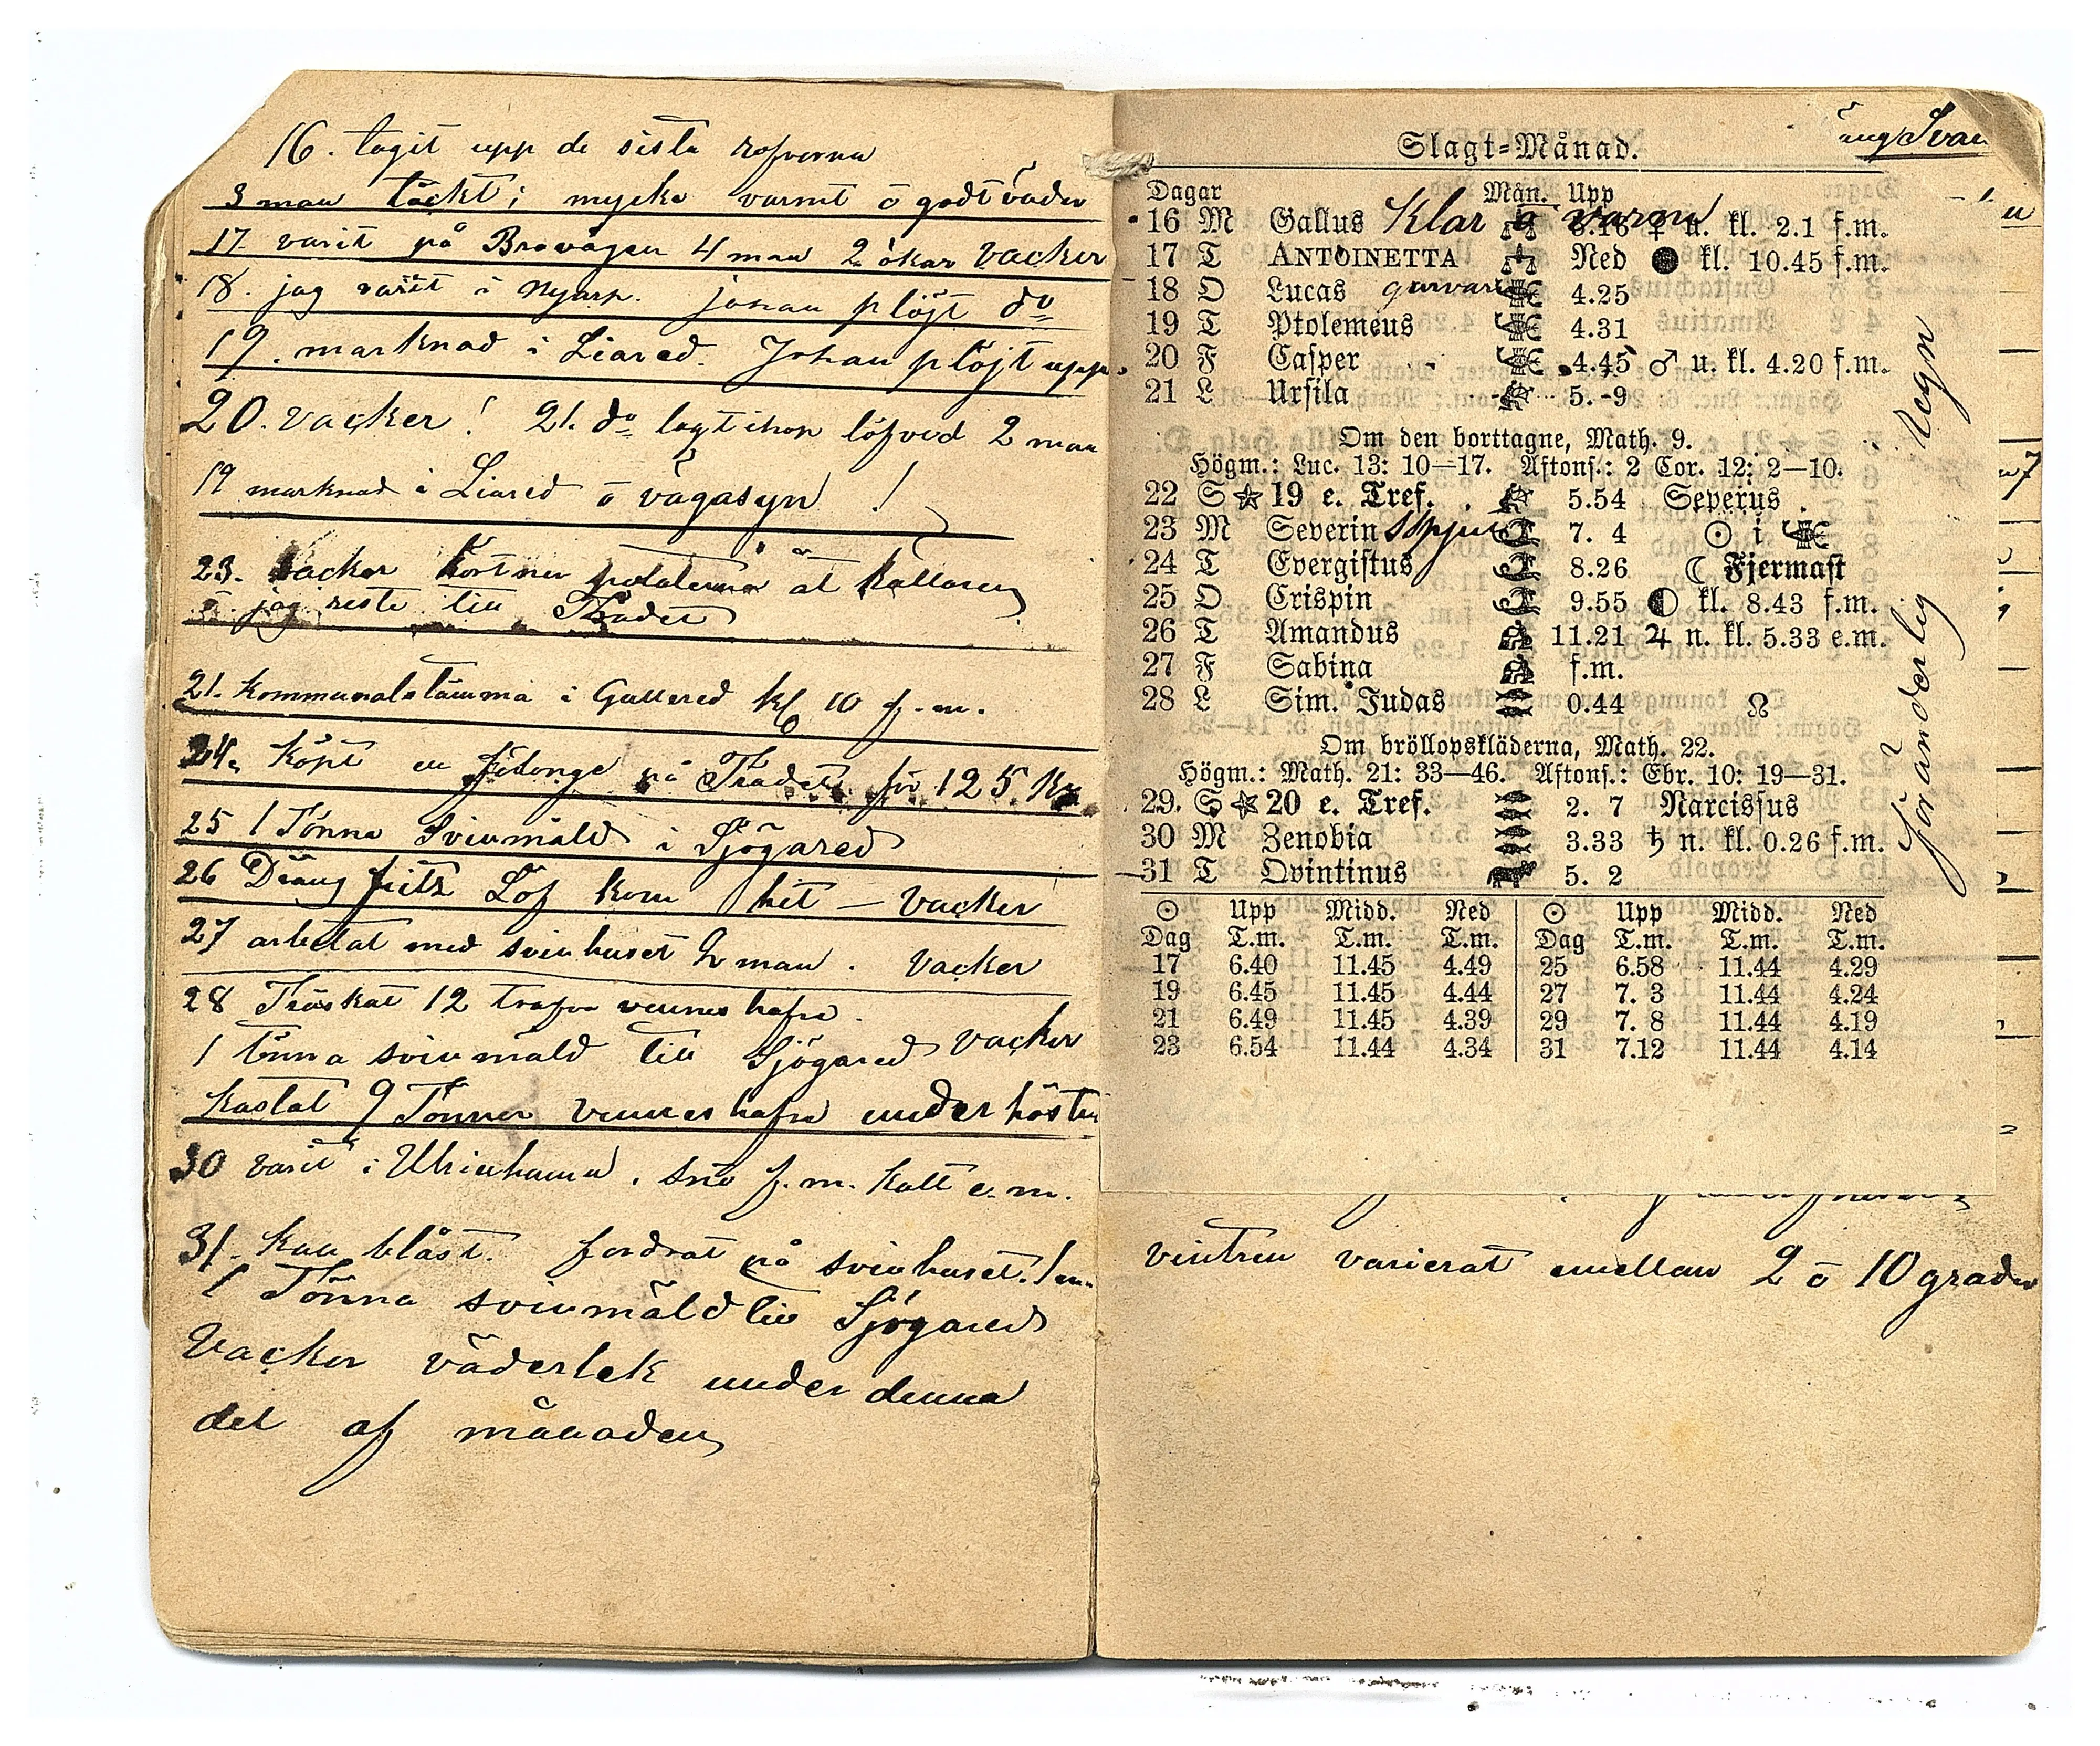 16. tagit upp de sista rofverna
3 man täckt; mycke varmt ō godt väder
17. varit på Brovägen 4 man 2 ökar vacker
18. jag varit i Nyarp. Johan plöjt do
19. marknad i Liared. Johan plöjt upp.
20. vacker! 21. do lagt ihop löfved 2 man
19 marknad i Liared ō vägasyn !
23. vacker kört ner potaterna åt källaren
ō jag reste till Tradet
21. Kommunalstämma i Gullered kl 10 f.m.
24. Köpt en på Tradet för 125 Kr
25 1 Tönna Svinmäld i Sjögared
26 Dräng fritz Löf kom hit — vacker
27 arbetat med svinhuset 2 man. vacker
28 Tröskat 12 trafva hafra.
1 tönna svinmäld till Sjögared vacker
Kastat 9 Tönner hafra under hösten
30 varit i Ulricehamn. snö f.m. kalt e.m.
31. kall blåst. fordrat på svinhuset. 1 m.
1 Tönna svinmäld till Sjögared
Vacker väderlek under denna
del af månaden
Slagt-Månad.
Dagar Mån. Upp
16 M Gallus Klar ō varm ♀ u. kl. 2.1 f.m.
17 T ANTOINETTA Ned ● kl. 10.45 f.m.
18 O Lucas garvare 4.25
19 T Ptolemeus 4.31
20 F Casper 4.45 ♂ u. kl. 4.20 f.m.
21 L Ursila 5. 9
Om den borttagne, Math. 9.
Högm.: Luc. 13: 10—17. Aftons.: 2 Cor. 12: 2—10.
22 S ☆ 19 e. Tref. 5.54 Severus
23 M Severin 7. 4 ☉ i
24 T Evergistus 8.26 ☾ Fjermast
25 O Crispin 9.55 ◐ kl. 8.43 f.m.
26 T Amandus 11.21 ♃ n. kl. 5.33 e.m.
27 F Sabina f.m.
28 L Sim. Judas 0.44 ☊
Om bröllopskläderna, Math. 22.
Högm.: Math. 21: 33—46. Aftons.: Ebr. 10: 19—31.
29. S ☆ 20 e. Tref. 2. 7 Narcissus
30 M Zenobia 3.33 ♄ n. kl. 0.26 f.m.
31 T Qvintinus 5. 2
☉ Upp Midd. Ned ☉ Upp Midd. Ned
Dag T.m. T.m. T.m. Dag T.m. T.m. T.m.
17 6.40 11.45 4.49 25 6.58 11.44 4.29
19 6.45 11.45 4.44 27 7. 3 11.44 4.24
21 6.49 11.45 4.39 29 7. 8 11.44 4.19
23 6.54 11.44 4.34 31 7.12 11.44 4.14
Föränderlig Regn
vintren varierat emellan 2 ō 10 grader